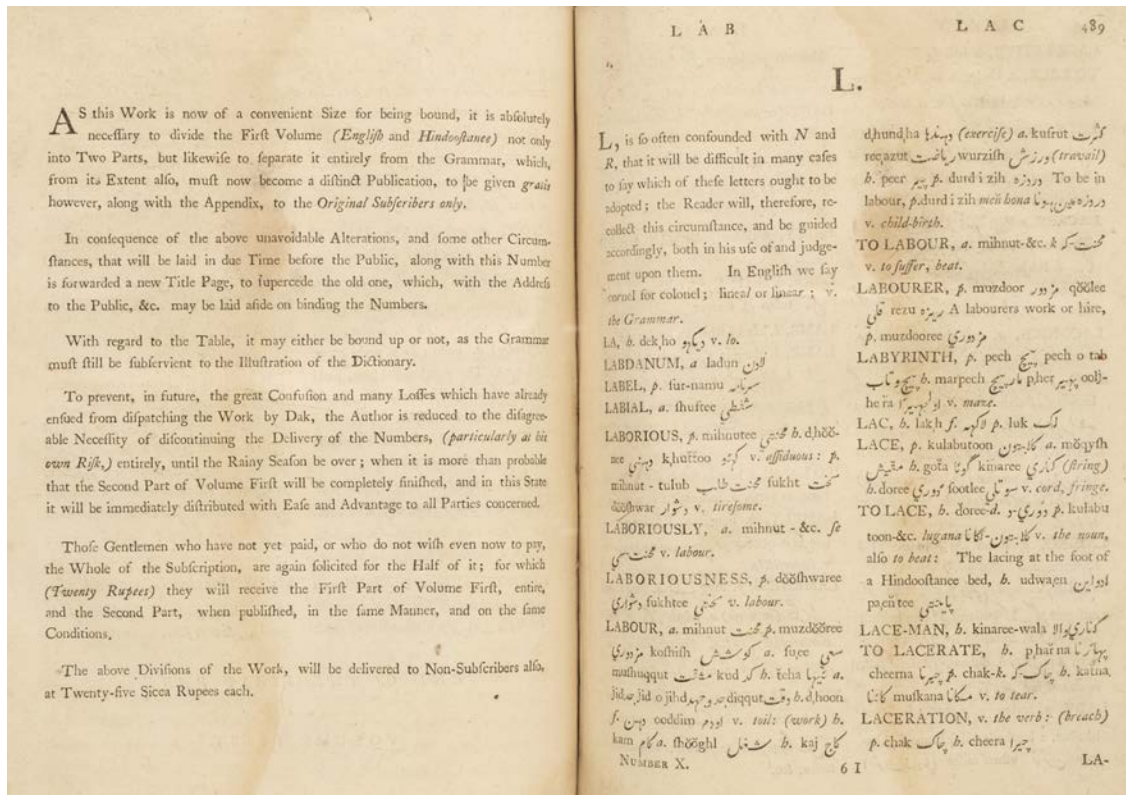 AS this Work is now of a convenient Size for being bound, it is abſolutely
neceſſary to divide the Firſt Volume (Engliſh and Hindooſtanee) not only
into Two Parts, but likewiſe to ſeparate it entirely from the Grammar, which,
from its Extent alſo, muſt now become a diſtinct Publication, to be given gratis
however, along with the Appendix, to the Original Subſcribers only.
In conſequence of the above unavoidable Alterations, and ſome other Circum-
ſtances, that will be laid in due Time before the Public, along with this Number
is forwarded a new Title Page, to ſupercede the old one, which, with the Addreſs
to the Public, &c. may be laid aſide on binding the Numbers.
With regard to the Table, it may either be bound up or not, as the Grammar
muſt ſtill be ſubſervient to the Illuſtration of the Dictionary.
To prevent, in future, the great Confuſion and many Loſſes which have already
enſued from diſpatching the Work by Dak, the Author is reduced to the diſagree-
able Neceſſity of diſcontinuing the Delivery of the Numbers, (particularly at his
own Riſk,) entirely, until the Rainy Seaſon be over; when it is more than probable
that the Second Part of Volume Firſt will be completely finiſhed, and in this State
it will be immediately diſtributed with Eaſe and Advantage to all Parties concerned.
Thoſe Gentlemen who have not yet paid, or who do not wiſh even now to pay,
the Whole of the Subſcription, are again ſolicited for the Half of it; for which
(Twenty Rupees) they will receive the Firſt Part of Volume Firſt, entire,
and the Second Part, when publiſhed, in the ſame Manner, and on the ſame
Conditions.
The above Diviſions of the Work, will be delivered to Non-Subſcribers alſo,
at Twenty-five Sicca Rupees each.
L A B L A C 489
L.
L, is ſo often confounded with N and
R, that it will be difficult in many caſes
to ſay which of theſe letters ought to be
adopted; the Reader will, therefore, re-
collect this circumſtance, and be guided
accordingly, both in his uſe of and judge-
ment upon them. In Engliſh we ſay
cornel for colonel; lineal or linear; v.
the Grammar.
LA, b. dek,ho دیکہو v. lo.
LABDANUM, a ladun لادن
LABEL, p. ſur-namu سرنامہ
LABIAL, a. ſhuftee شفتي
LABORIOUS, p. mihnutee محنتي b. d,hŏŏ-
nee دہني k,huttoo v. aſſiduous: p.
mihnut - tulub محنت طلب ſukht سخت
dŏŏſhwar دشوار v. tireſome.
LABORIOUSLY, a. mihnut - &c. ſe
محنت-سي v. labour.
LABORIOUSNESS, p. dŏŏſhwaree
دشواري ſukhtee سختي v. labour.
LABOUR, a. mihnut محنت p. muzdŏŏree
مزدوري koſhiſh کوشش a. ſu,ee سعي
muſhuqqut مشقت kud کد b. a.
jid جد jid o jihd جد و جہد diqqut دقت b. d,hoon
f. دہن ooddim اودم v. toil: (work) b.
kam کام a. ſhŏŏghl شغل b. kaj کاج
NUMBER X.
d,hund,ha دہندہا (exerciſe) a. kuſrut کثرت
reeazut ریاضت wurziſh ورزش (travail)
b. peer پیر p. durd i zih دردزہ To be in
labour, p. durd i zih meñ hona دردزہ مین ہونا
v. child-birth.
TO LABOUR, a. mihnut-&c. k محنت-کر
v. to ſuffer, beat.
LABOURER, p. muzdoor مزدور qŏŏlee
قلي rezu ریزہ A labourers work or hire,
p. muzdooree مزدوري
LABYRINTH, p. pech پیچ pech o tab
پیچ و تاب b. marpech مارپیچ p,her پہیر oolj-
v. maze.
LAC, b. lakh f. لاکہہ p. luk لک
LACE, p. kulabutoon کلابتون a. mŏqyſh
مقیش b. gota گوٹا kinaree کناري (ſtring)
b. doree ڈوري ſootlee سوتلي v. cord, fringe.
TO LACE, b. doree-d. ڈوري-د p. kulabu
toon-&c. lugana کلابتون-لگانا v. the noun,
alſo to beat: The lacing at the foot of
a Hindooſtanee bed, b. udwa,en ادواین
pa,eñtee پاینتي
LACE-MAN, b. kinaree-wala کناري والا
TO LACERATE, b. p,harna پہاڑنا
cheerna چیرنا p. chak-k. چاک-کر b. katna
کاٹنا muſkana مسکانا v. to tear.
LACERATION, v. the verb: (breach)
p. chak چاک b. cheera چیرا
6 I LA-